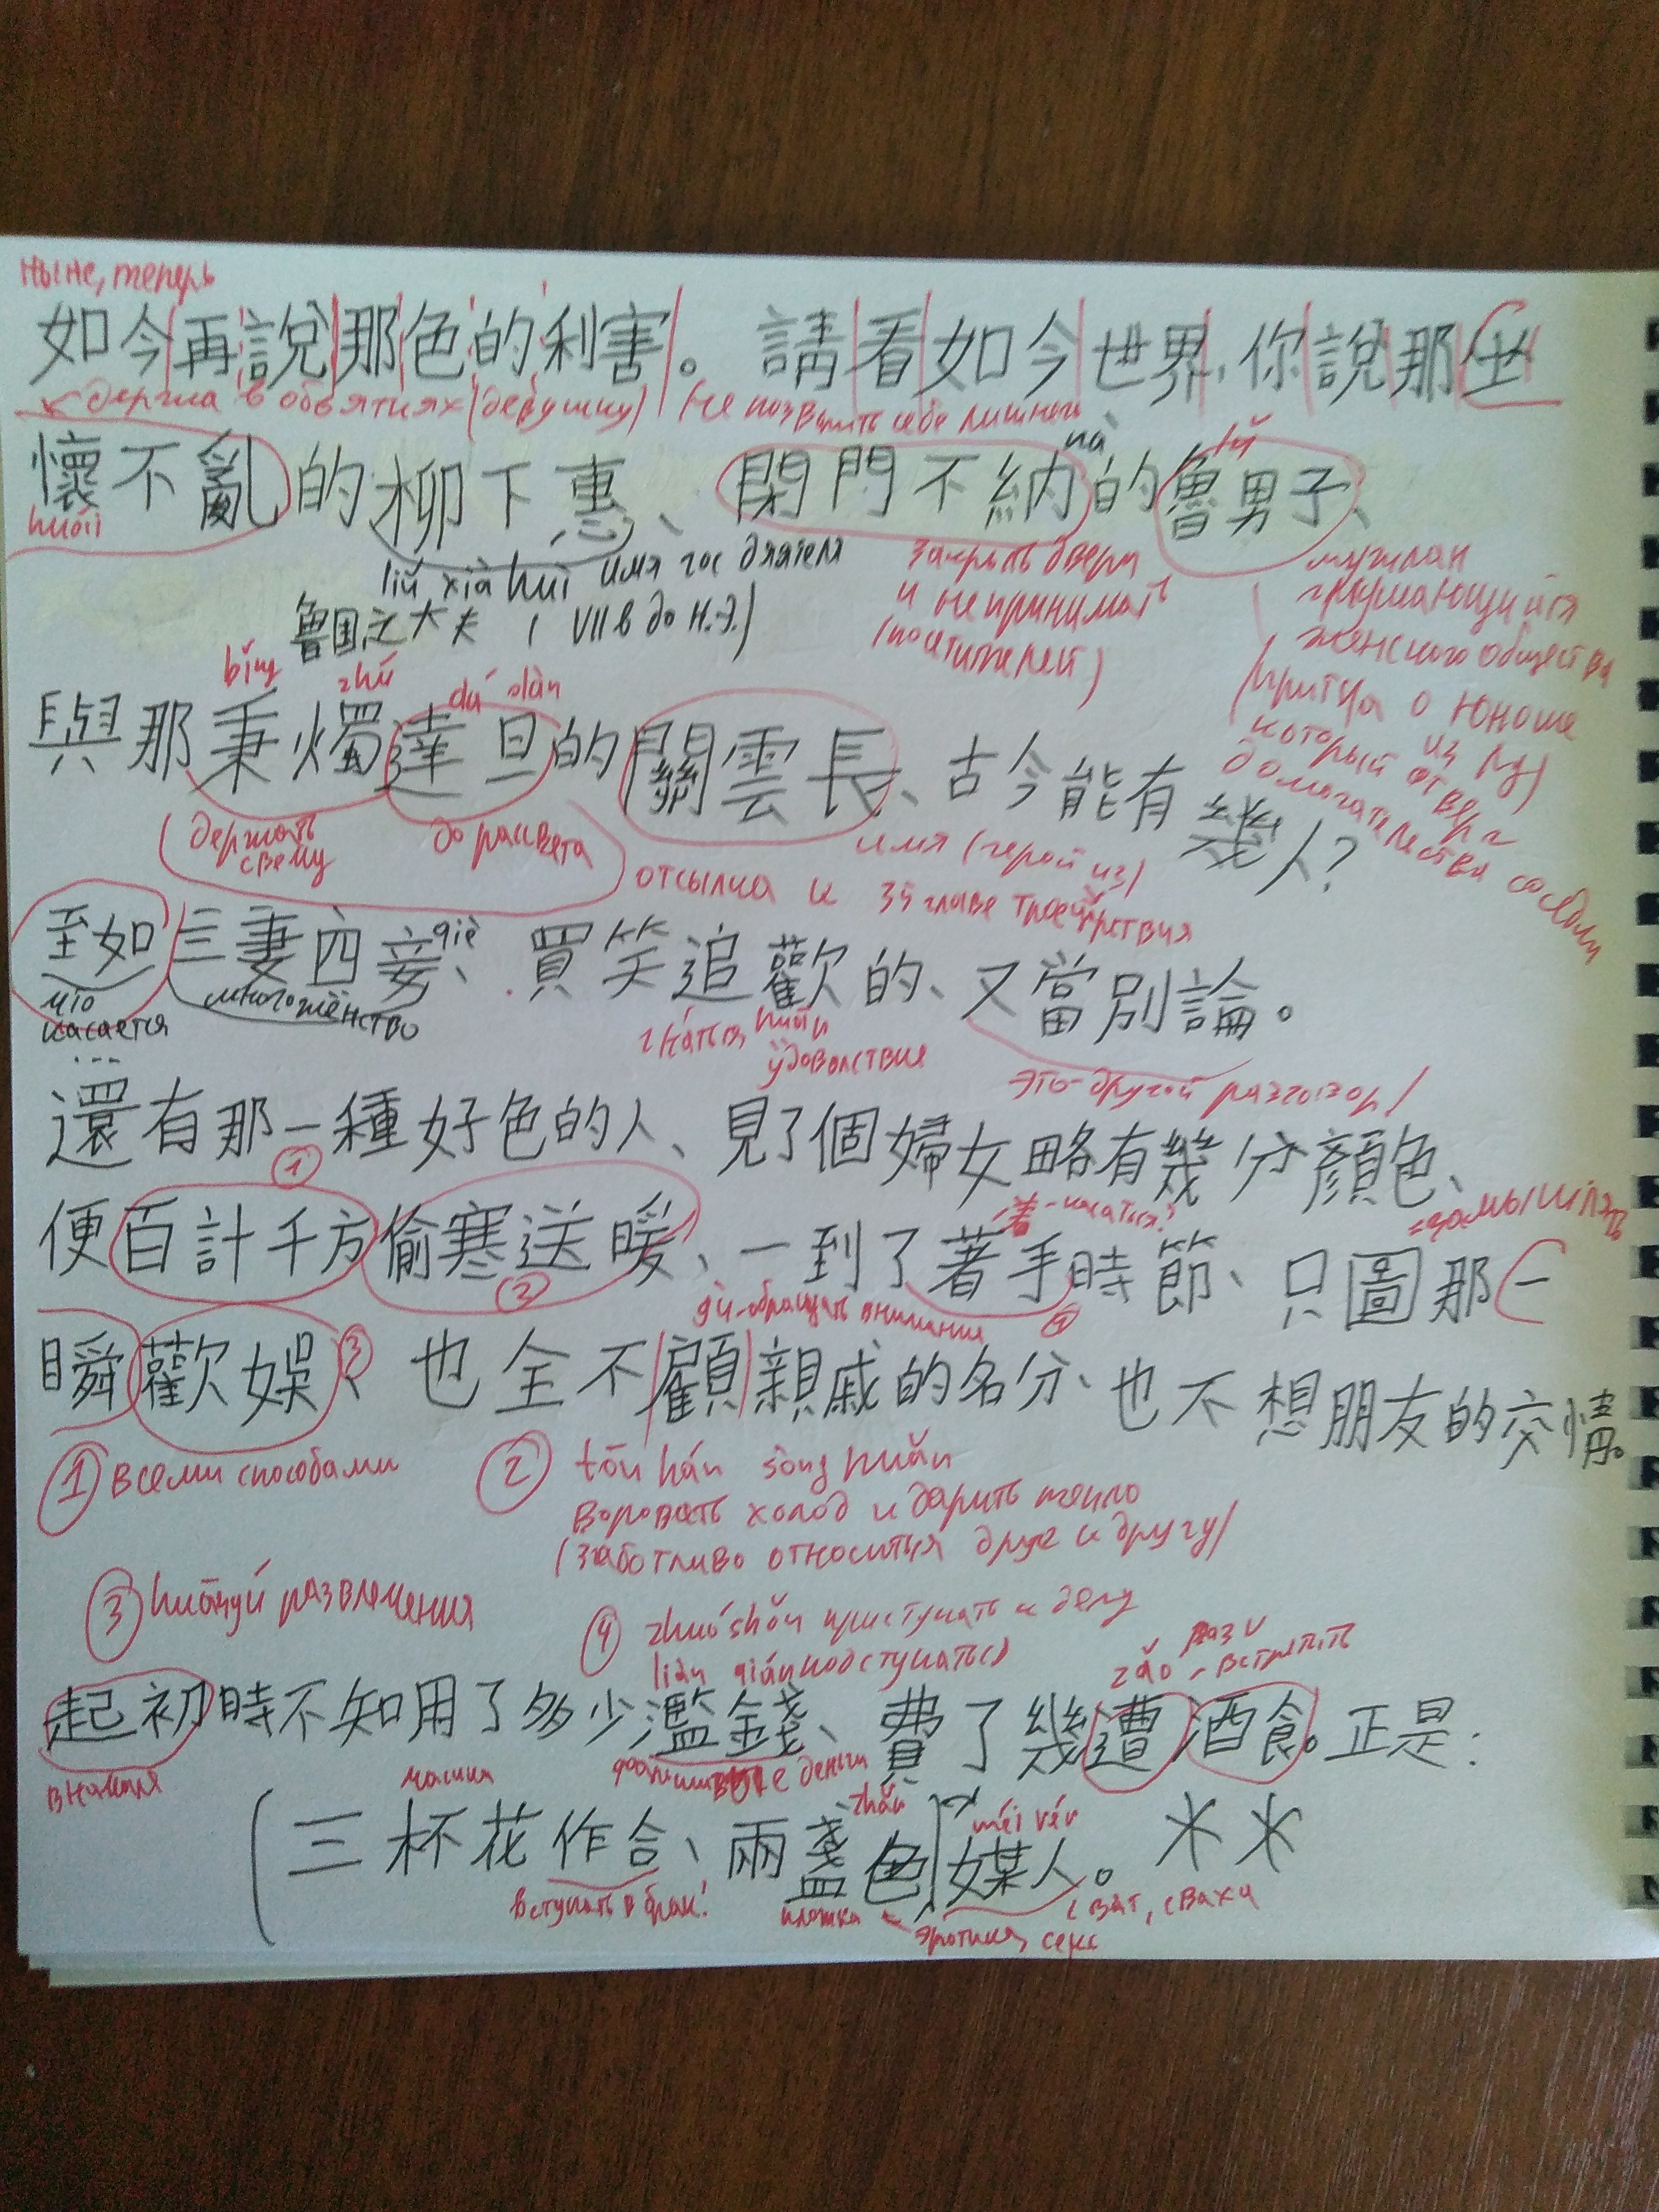 ныне, теперь
如今再說那色的利害。請看如今世界,你說那坐
держа в объятиях (девушку) не позволить себе лишнего
nà lǔ
懷不亂的柳下惠、閉門不納的魯男子、
huái
liǔ xià huì имя гос деятеля
закрыть двери
и не принимать
(посетителей)
魯国之大夫 ( VII в до н.э.)
мужлан
женского общества
(притча о юноше
из Лу)
который отверг
домогательства соседки
bǐng zhú dá dàn
與那秉燭達旦的關雲長、古今能有幾人?
держать
свечу
до рассвета
имя (герой из)
отсылка к 35 главе троецарствия
至如三妻四妾、買笑追歡的、又當別論。
qiè
что
касается
...
многожёнство
гнаться, huān
удовольствия
это другой разговор!
還有那一種好色的人、見了個婦女略有幾分顏色、
①
着-касаться? замышлять
便百計千方偷寒送暖、一到了著手時節、只圖那一
②
gù-обращать внимания ④
瞬歡娛、也全不顧親戚的名分、也不想朋友的交情。
③
① всеми способами
② tōu hán sòng nuǎn
воровать холод и дарить тепло
(заботливо относиться друг к другу)
③ huānyú развлечения
④ zhuóshǒu приступать к делу
подступаться)
раз
zāo - встретить
起初時不知用了多少濫錢、費了幾遭酒食。正是:
вначале
деньги
zhǎn méi rén
三杯花作合、兩盞色媒人。**
вступать в брак!
плошка
эротика, секс
сват, сваха